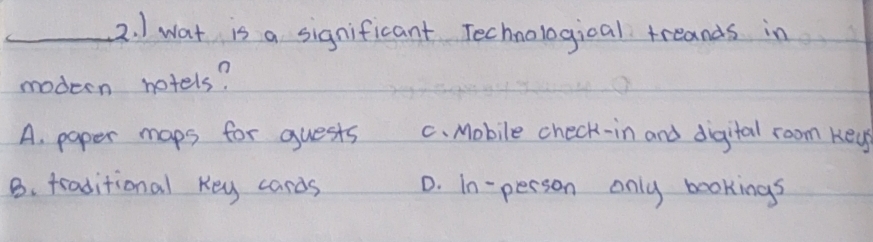 ______2.) Wat is a significant Technological treands in
modern hotels?
A. paper maps for guests C. Mobile check-in and digital room keys
B. traditional key cards D. In-person only bookings